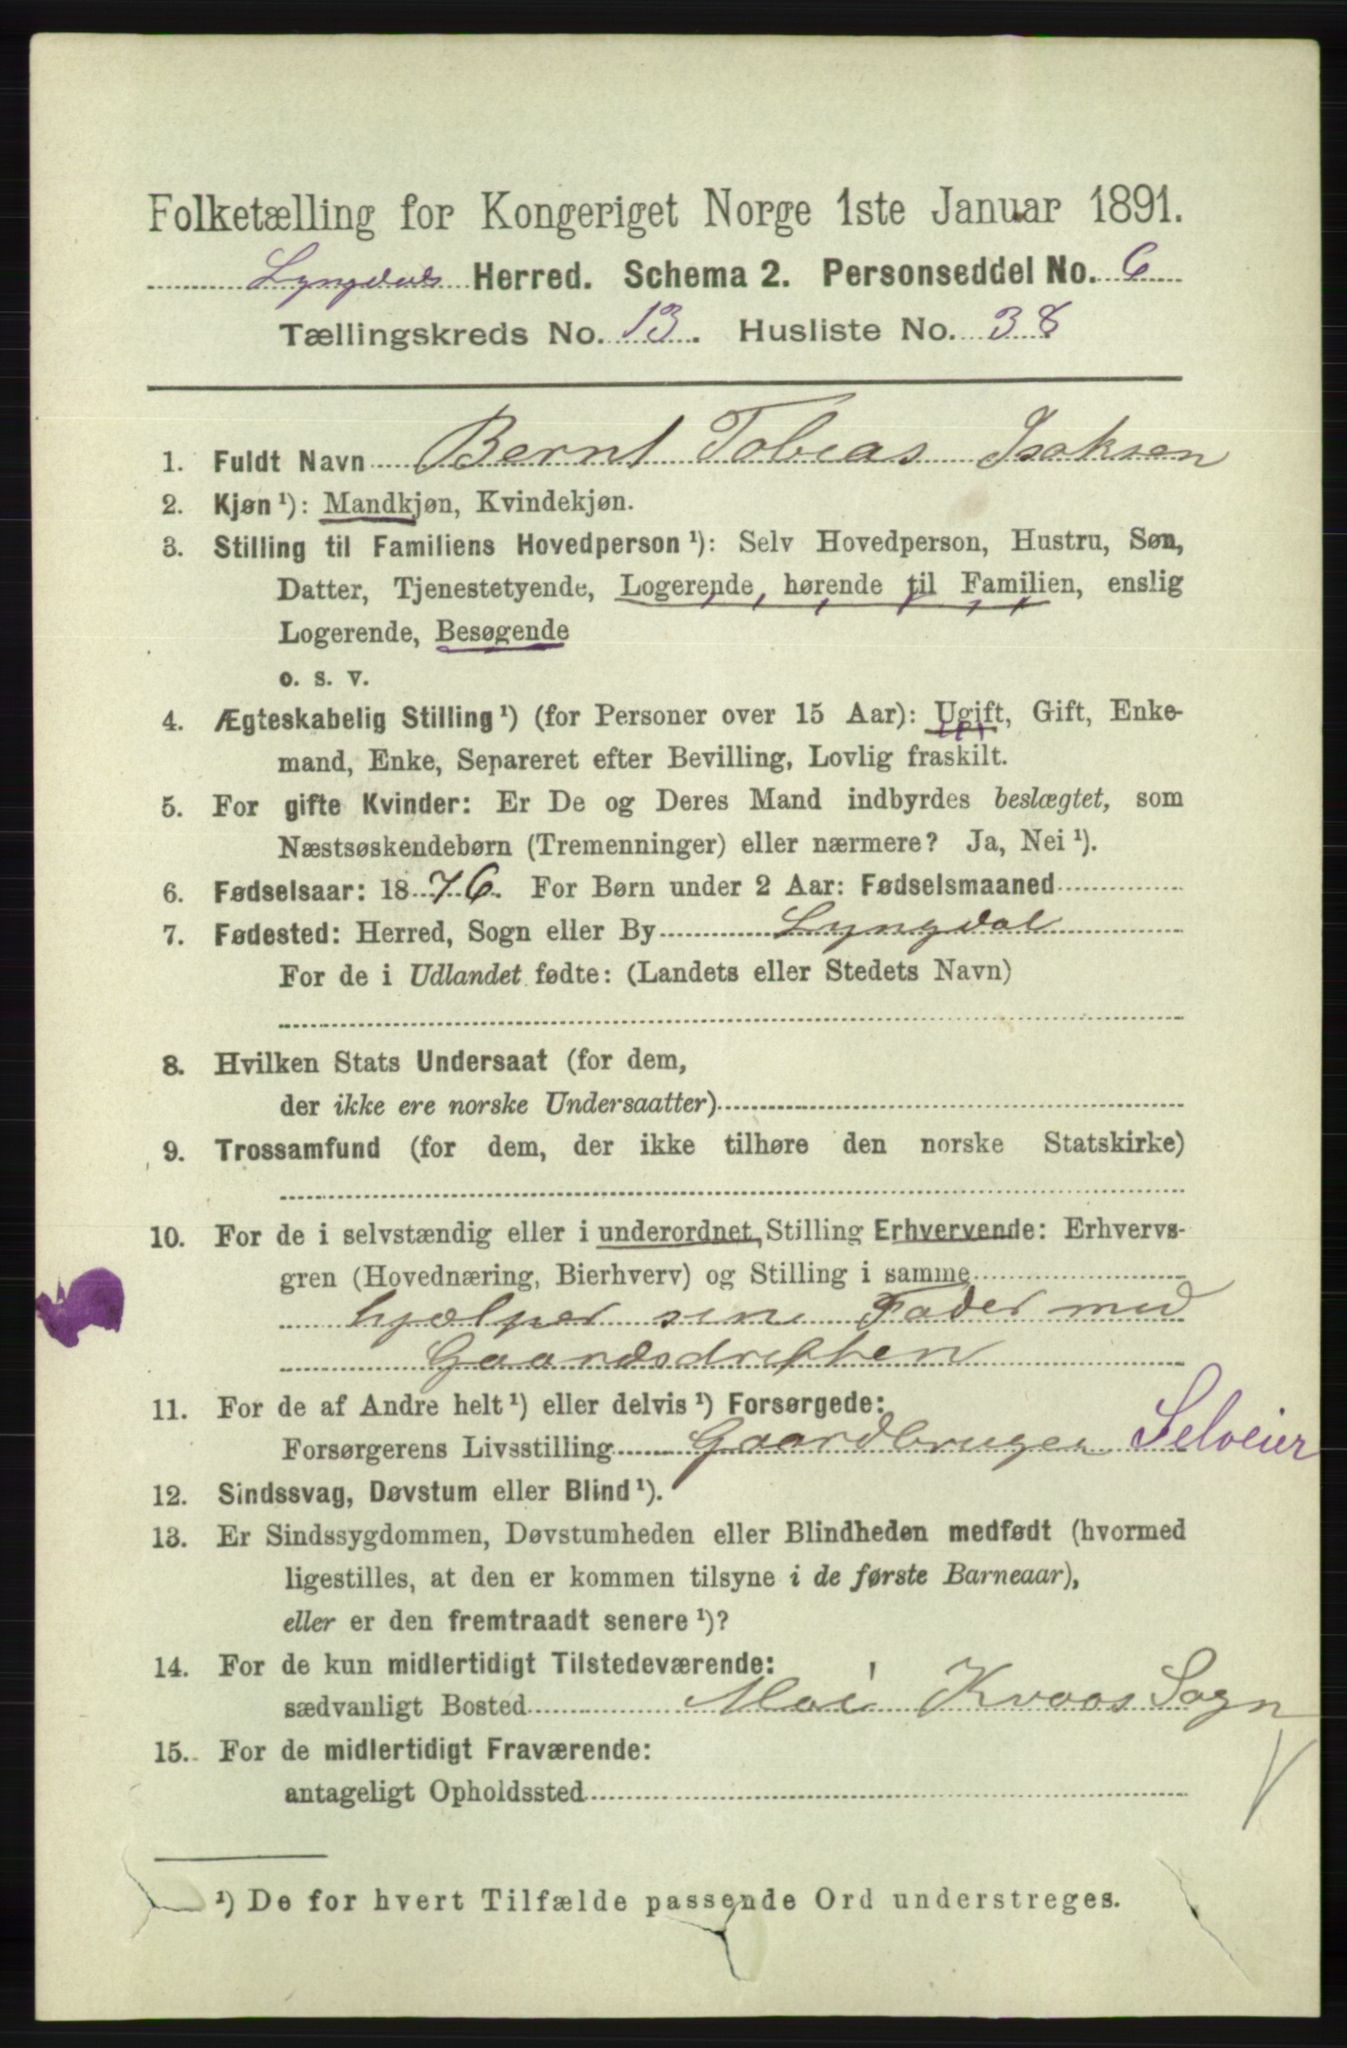 Folketælling for Kongeriget Norge 1ste Januar 1891.
Lyngdals Herred. Schema 2. Personseddel No. 6
Tællingskreds No. 13. Husliste No. 38
1. Fuldt Navn Bernt Tobias Isaksen
2. Kjøn ¹): Mandkjøn, Kvindekjøn.
3. Stilling til Familiens Hovedperson ¹): Selv Hovedperson, Hustru, Søn,
Datter, Tjenestetyende, Logerende, hørende til Familien, enslig
Logerende, Besøgende
o. s. v.
4. Ægteskabelig Stilling ¹) (for Personer over 15 Aar): Ugift, Gift, Enke-
mand, Enke, Separeret efter Bevilling, Lovlig fraskilt.
5. For gifte Kvinder: Er De og Deres Mand indbyrdes beslægtet, som
Næstsøskendebørn (Tremenninger) eller nærmere? Ja, Nei ¹).
6. Fødselsaar: 1876. For Børn under 2 Aar: Fødselsmaaned
7. Fødested: Herred, Sogn eller By Lyngdal
For de i Udlandet fødte: (Landets eller Stedets Navn)
8. Hvilken Stats Undersaat (for dem,
der ikke ere norske Undersaatter)
9. Trossamfund (for dem, der ikke tilhøre den norske Statskirke)
10. For de i selvstændig eller i underordnet Stilling Erhvervende: Erhvervs-
gren (Hovednæring, Bierhverv) og Stilling i samme
hjælper sin Fader med
Gaardsdriften
11. For de af Andre helt ¹) eller delvis ¹) Forsørgede:
Forsørgerens Livsstilling Gaardbruger Selveier
12. Sindssvag, Døvstum eller Blind ¹).
13. Er Sindssygdommen, Døvstumheden eller Blindheden medfødt (hvormed
ligestilles, at den er kommen tilsyne i de første Barneaar),
eller er den fremtraadt senere ¹)?
14. For de kun midlertidigt Tilstedeværende:
sædvanligt Bosted Moi Kvaas Sogn
15. For de midlertidigt Fraværende:
antageligt Opholdssted
¹) De for hvert Tilfælde passende Ord understreges.